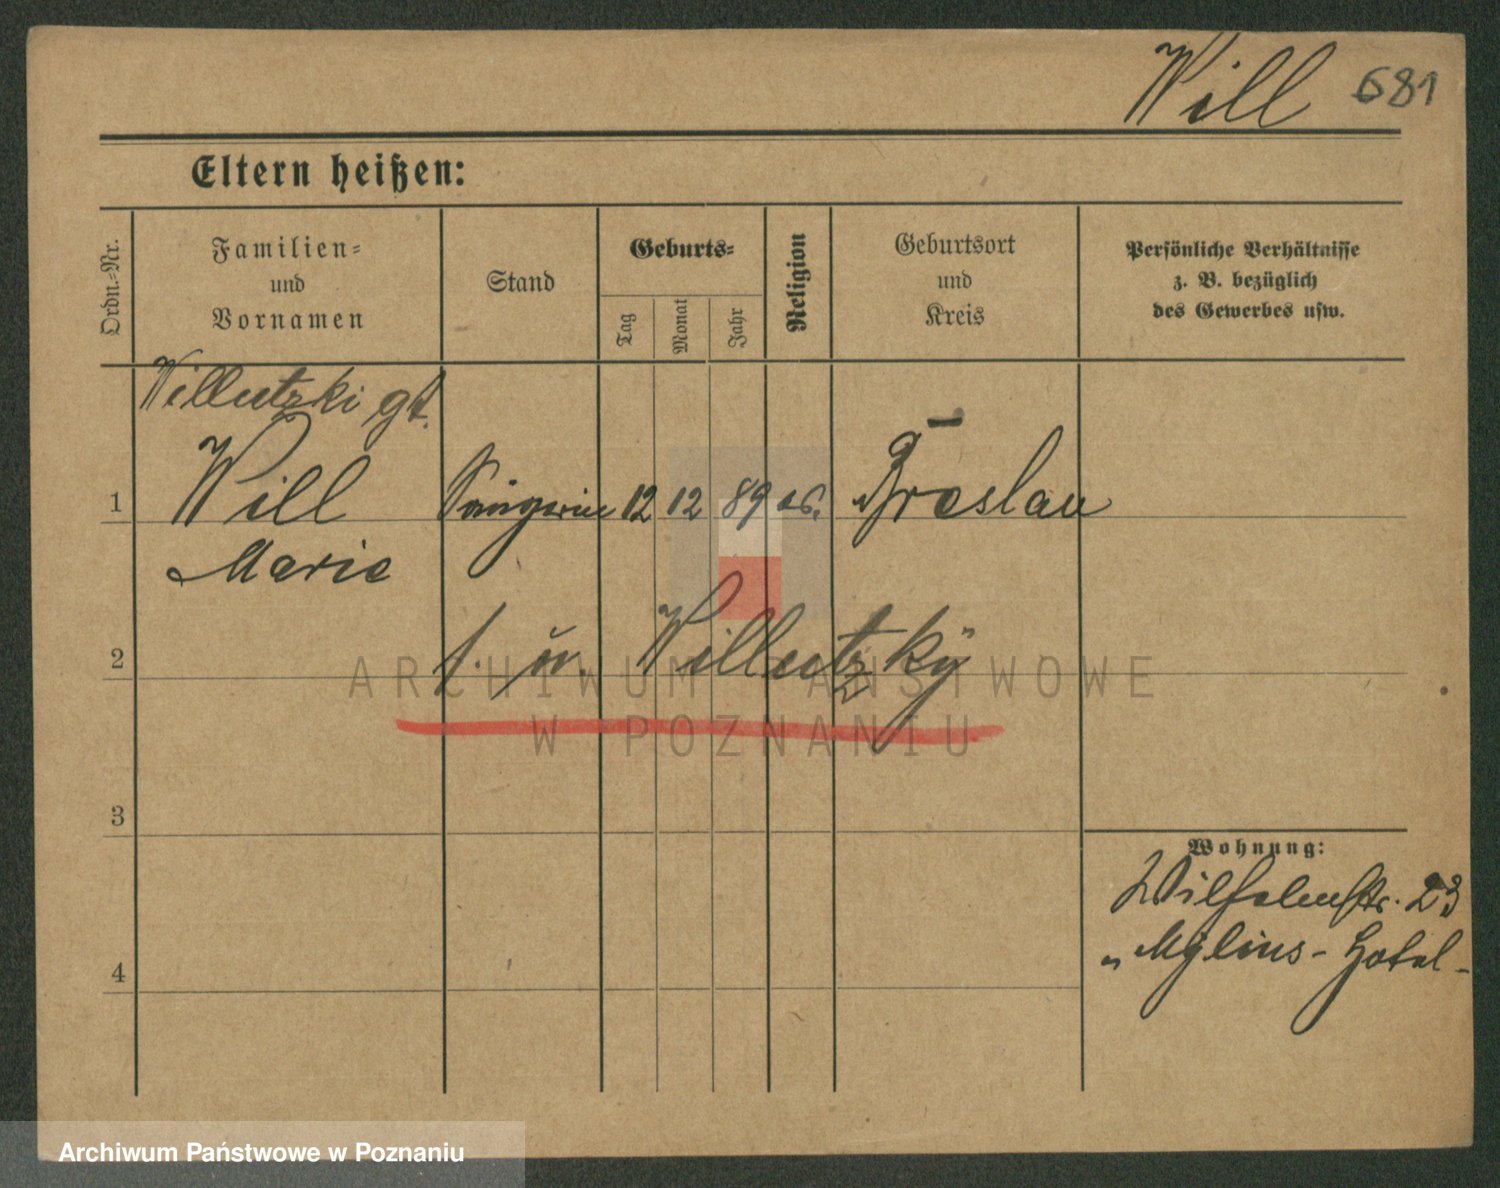 Will 681
Eltern heißen:
Ordn.-Nr.
Familien-
und
Vornamen
Stand
Geburts-
Tag
Monat
Jahr
Religion
Geburtsort
und
Kreis
Persönliche Verhältnisse
z. B. bezüglich
des Gewerbes usw.
Willutzki gt.
1 Will Sängerin 12 12 89 Breslau
Marie
2 s. u. Willutzky
3
4
Wohnung:
Wilhelmstr. 23
Mylius-Hotel-
ARCHIWUM PAŃSTWOWE
W POZNANIU
Archiwum Państwowe w Poznaniu